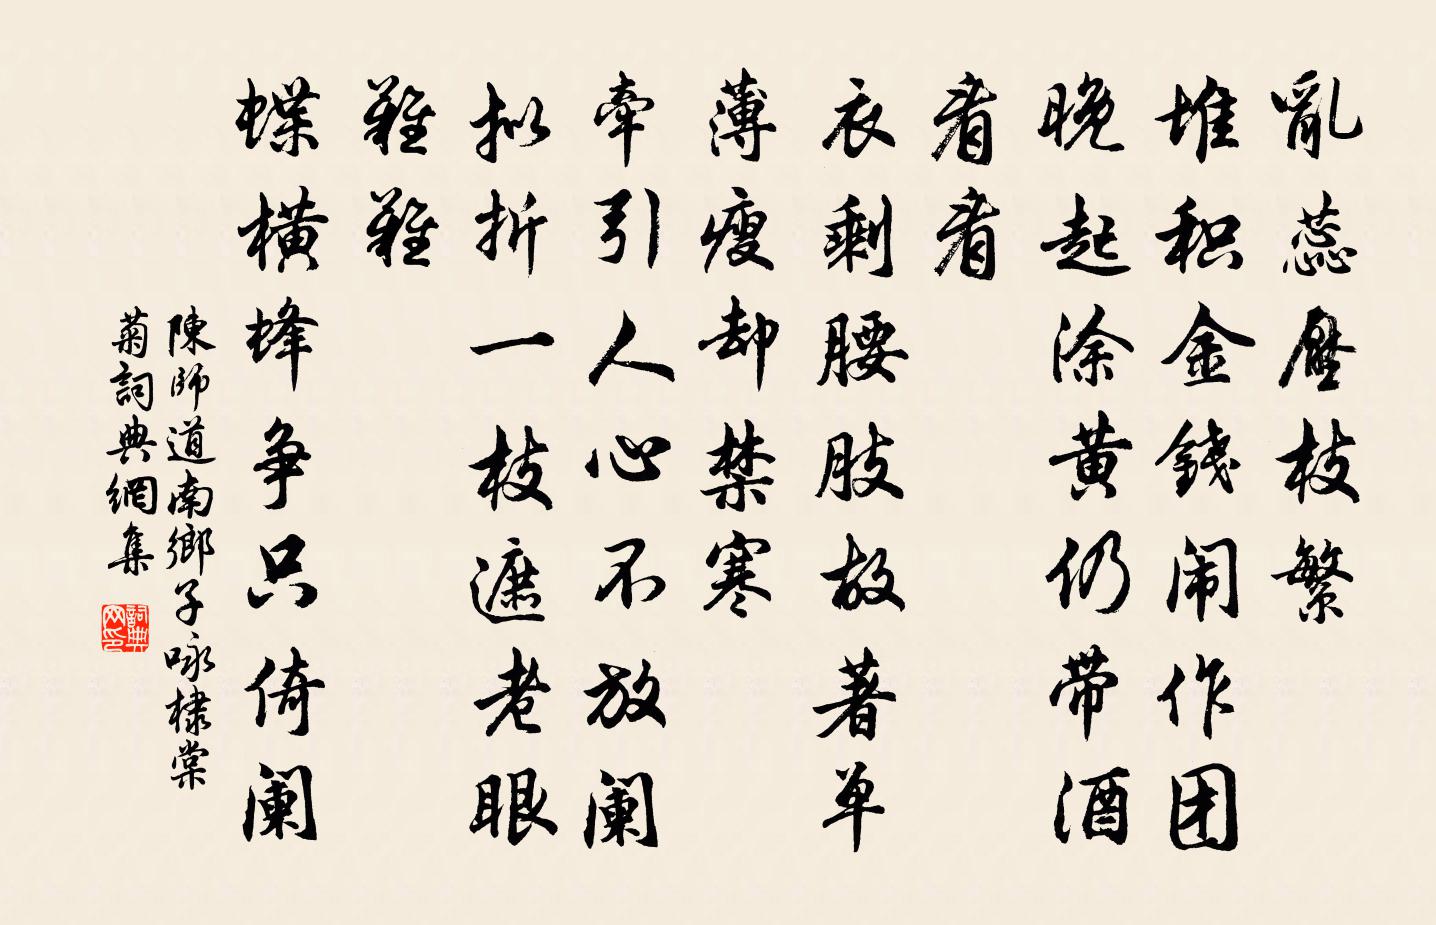 亂蕊壓枝繁
堆积金錢闹作团
晚起涂黄仍带酒
看看
衣剩腰肢故著单
薄瘦却禁寒
牵引人心不放阑
拟折一枝遮老眼
難難
蝶横蜂争只倚阑
陳師道南鄉子咏棣棠
菊詞典網集
詞典
网印